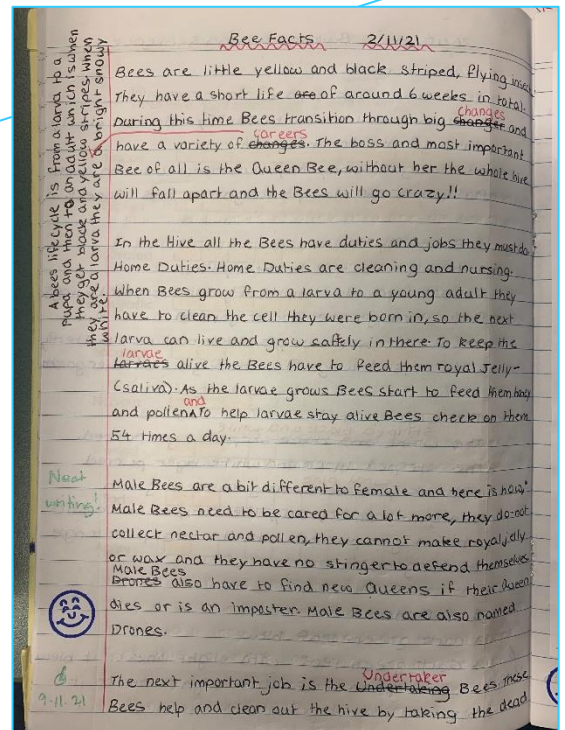 Bee Facts 2/11/21
Bees are little yellow and black striped, flying
They have a short life are of around 6 weeks in total.
changes
During this time Bees transition through big changer and
careers
have a variety of changes. The boss and most important
Bee of all is the Queen Bee, without her the whole hive
will fall apart and the Bees will go crazy!!
In the Hive all the Bees have duties and jobs they must do
Home Duties. Home Duties are cleaning and nursing.
When Bees grow from a larva to a young adult they
have to clean the cell they were born in, so the next
larva can live and grow saftely in there. To keep the
larvae
larvaes alive the Bees have to feed them royal Jelly-
(saliva). As the larvae grows Bees start to feed them
and
and pollen ^ To help larvae stay alive Bees check on them
54 times a day.
Male Bees are a bit different to female and here is how,
Male Bees need to be cared for a lot more, they do-not
collect nectar and pollen, they cannot make royal jelly
or wax and they have no stinger to defend themselves
Male Bees
Drones also have to find new Queens if their Queen
dies or is an imposter. Male Bees are also named
Drones.
Undertaker
The next important job is the Undertaking Bees These
Bees help and clean out the hive by taking the dead
A bees lifecycle is from a larva to a
pupa and then to an adult which is when
they get black and yellow stripes, when
they are a larva they are a bright snowy
white.
Neat
writing!
9.11.21